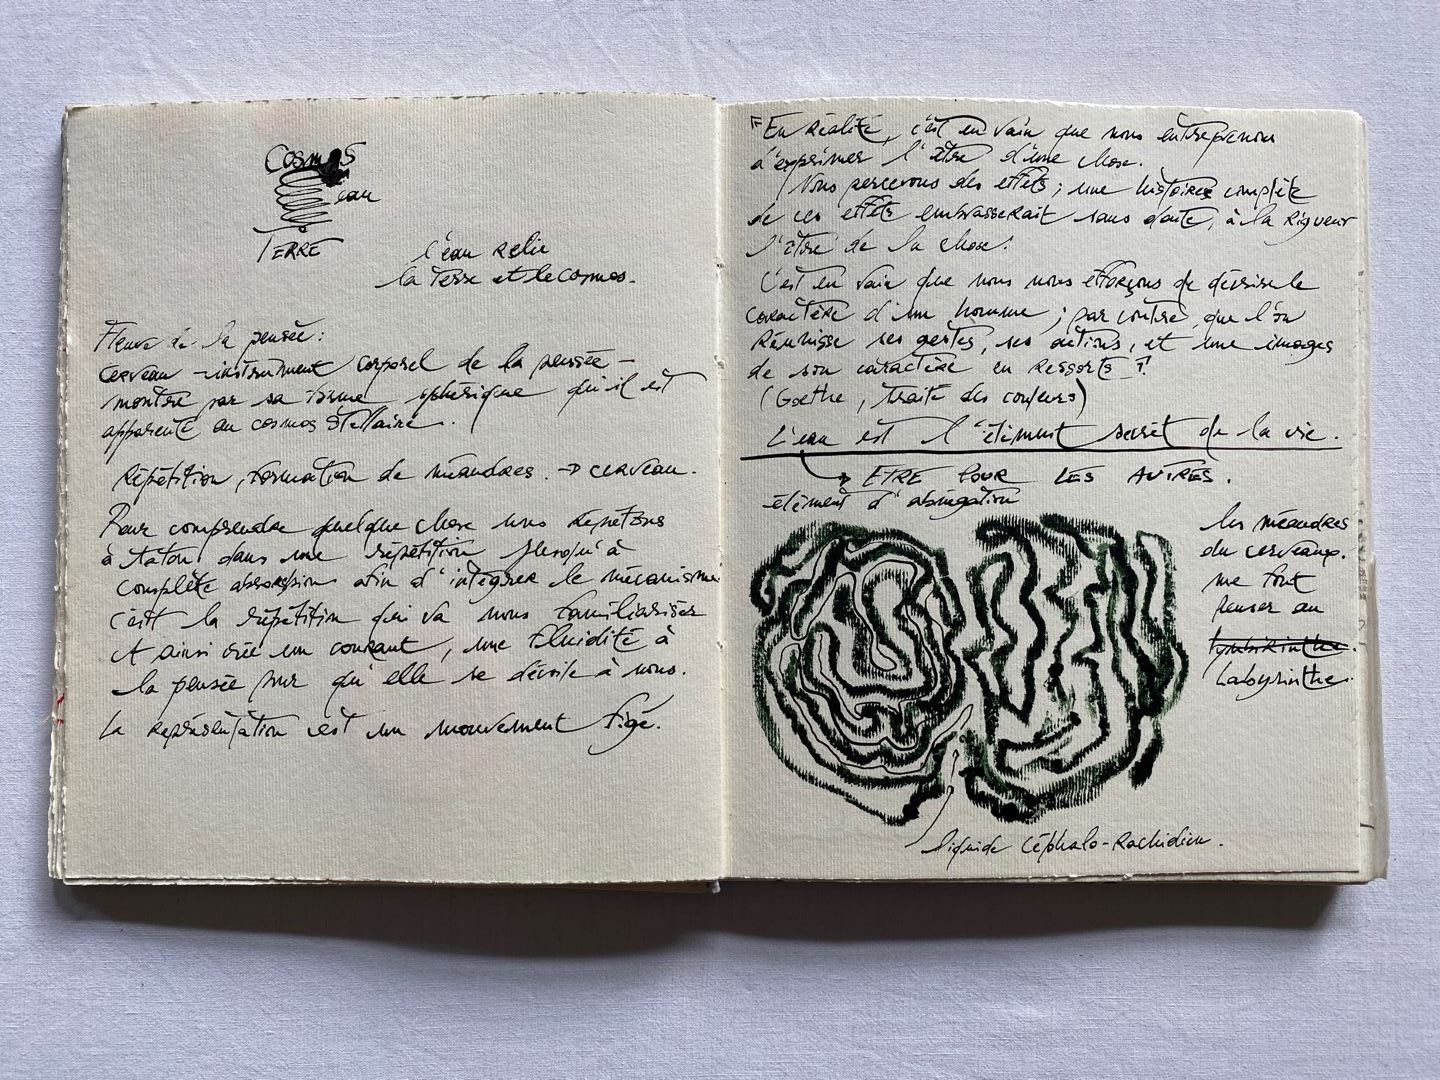 Cosmos
eau
TERRE
l'eau relie
la Terre et le cosmos.
Fleuve de la pensée :
cerveau - instrument corporel de la pensée -
montre par sa forme sphérique qu'il est
apparenté au cosmos stellaire.
Répétition, formation de méandres. → cerveau.
Pour comprendre quelque chose nous répétons
à taton, dans une répétition jusqu'à
complète absorption afin d'intégrer le mécanisme
c'est la répétition qui va nous familiariser
et ainsi crée un courant, une fluidité à
la pensée pour qu'elle se dévoile à nous.
La représentation est un mouvement figé.
"En réalité, c'est en vain que nous entreprenons
d'exprimer l'être d'une chose.
Nous percevons des effets ; une histoire complète
de ces effets embrasserait sans doute, à la rigueur
l'être de la chose.
C'est en vain que nous nous efforçons de décrire le
caractère d'un homme ; par contre, que l'on
réunisse ses gestes, ses actions, et une images
de son caractère en ressort"
(Goethe, traité des couleurs)
L'eau est l'élément secret de la vie.
→ ETRE POUR LES AUTRES.
élément d'abnégation
les méandres
du cerveaux.
me font
penser au
Labyrinthe.
liquide Céphalo-Rachidien.